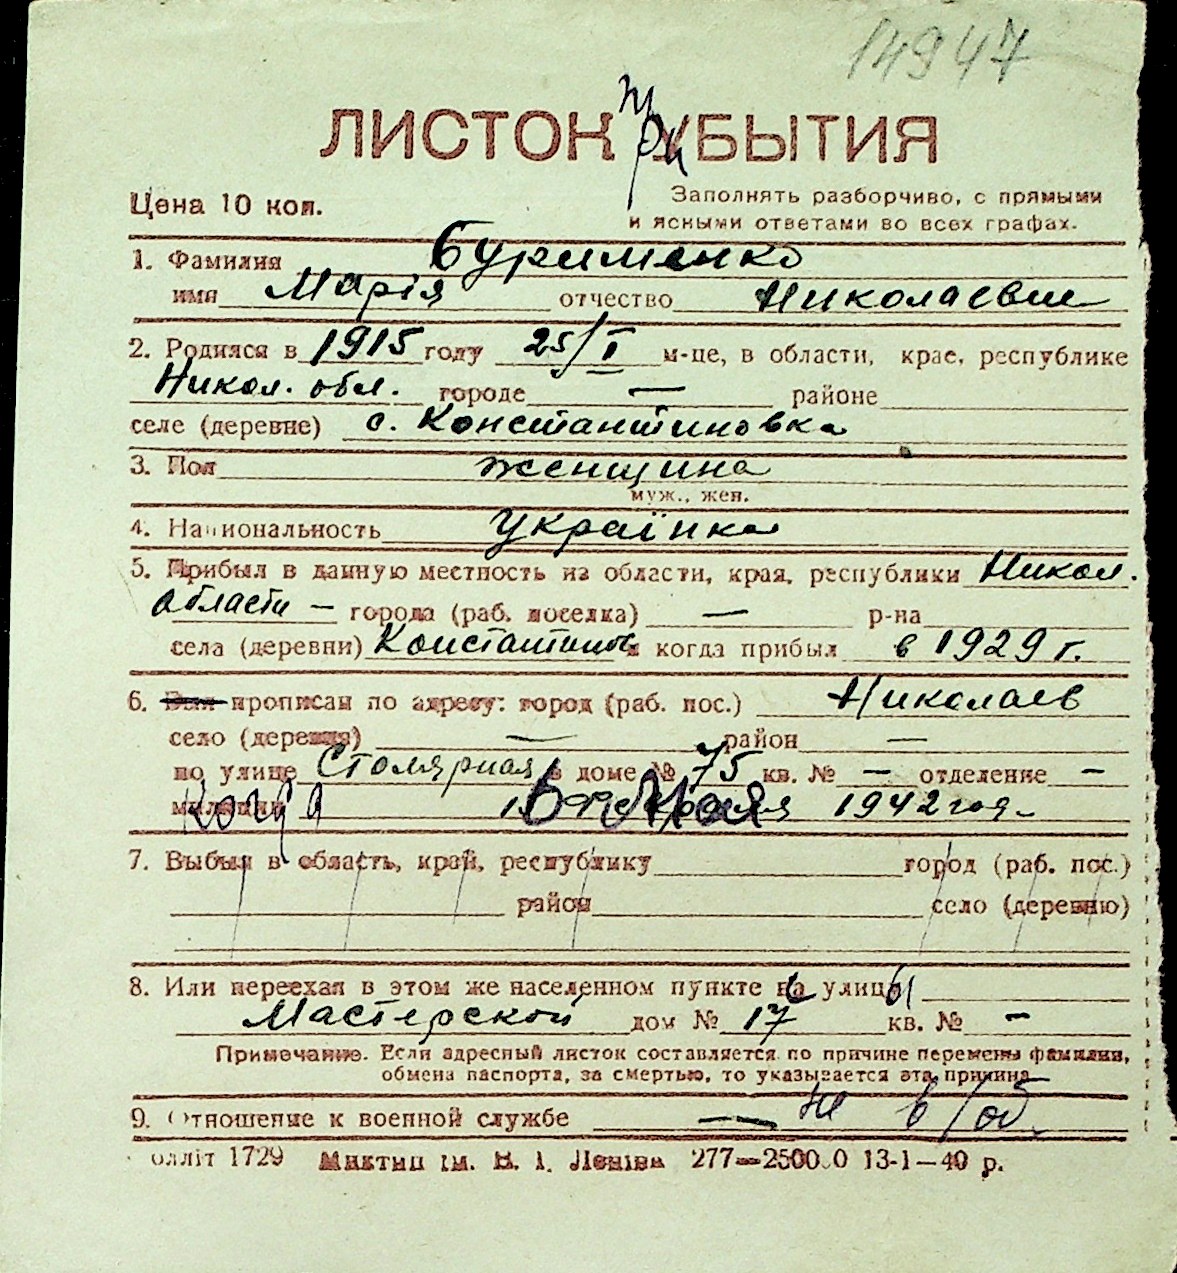 14947
ЛИСТОК при УБЫТИЯ
Цена 10 коп.
Заполнять разборчиво, с прямыми
и ясными ответами во всех графах.
1. Фамилия Буримĕнко
имя Марія отчество Николаевне
2. Родился в 1915 году 25/I м-це, в области, крае, республике
Никол. обл. городе — районе
селе (деревне) с. Константиновка
3. Пол женщина
муж., жен.
4. Национальность українка
5. Прибыл в данную местность из области, края, республики Никол.
области — города (раб. поселка) — р-на
села (деревни) когда прибыл в 1929 г.
6. Был прописан по адресу: город (раб. пос.) Николаев
село (деревня) — район —
по улице Столярная в доме № 75 кв. № — отделение —
милиции Когда 6 Мая 1942 год
7. Выбыл в область, край, республику город (раб. пос.)
район село (деревню)
8. Или переехал в этом же населенном пункте с улицы
Мастерской дом № 17 кв. № —
Примечание. Если адресный листок составляется по причине перемены фамилии,
обмена паспорта, за смертью, то указывается эта причина
9. Отношение к военной службе — не в/об
олліт 1729 Миктип ім. В. І. Леніна 277—25000 13-1—40 р.